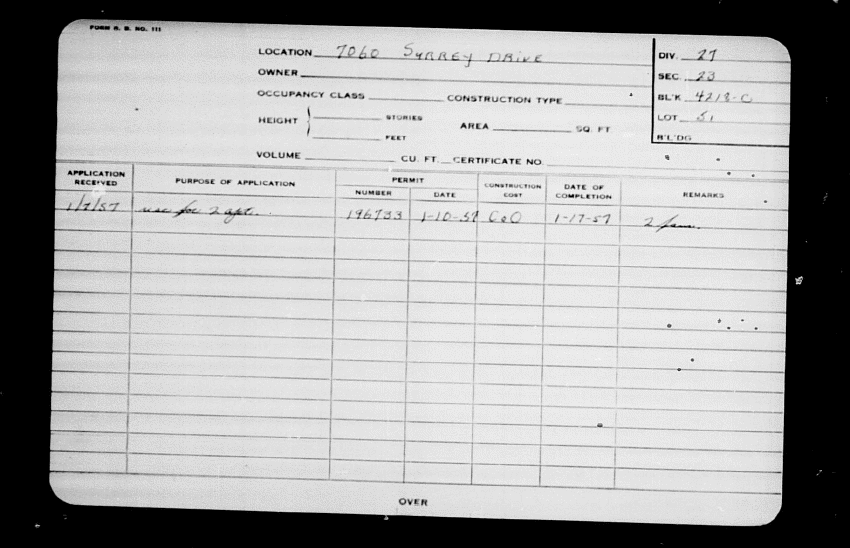 FORM B. B. NO. 111
LOCATION 7060 SURREY DRIVE
OWNER
OCCUPANCY CLASS CONSTRUCTION TYPE
HEIGHT STORIES FEET AREA SQ. FT.
VOLUME CU. FT. CERTIFICATE NO.
DIV. 27
SEC. 23
BL'K 4218-C
LOT 51
B'L'DG
APPLICATION RECEIVED PURPOSE OF APPLICATION PERMIT NUMBER DATE CONSTRUCTION COST DATE OF COMPLETION REMARKS
1/7/57 use for 2 apt. 196733 1-10-57 CoO 1-17-57 2 fam.
OVER